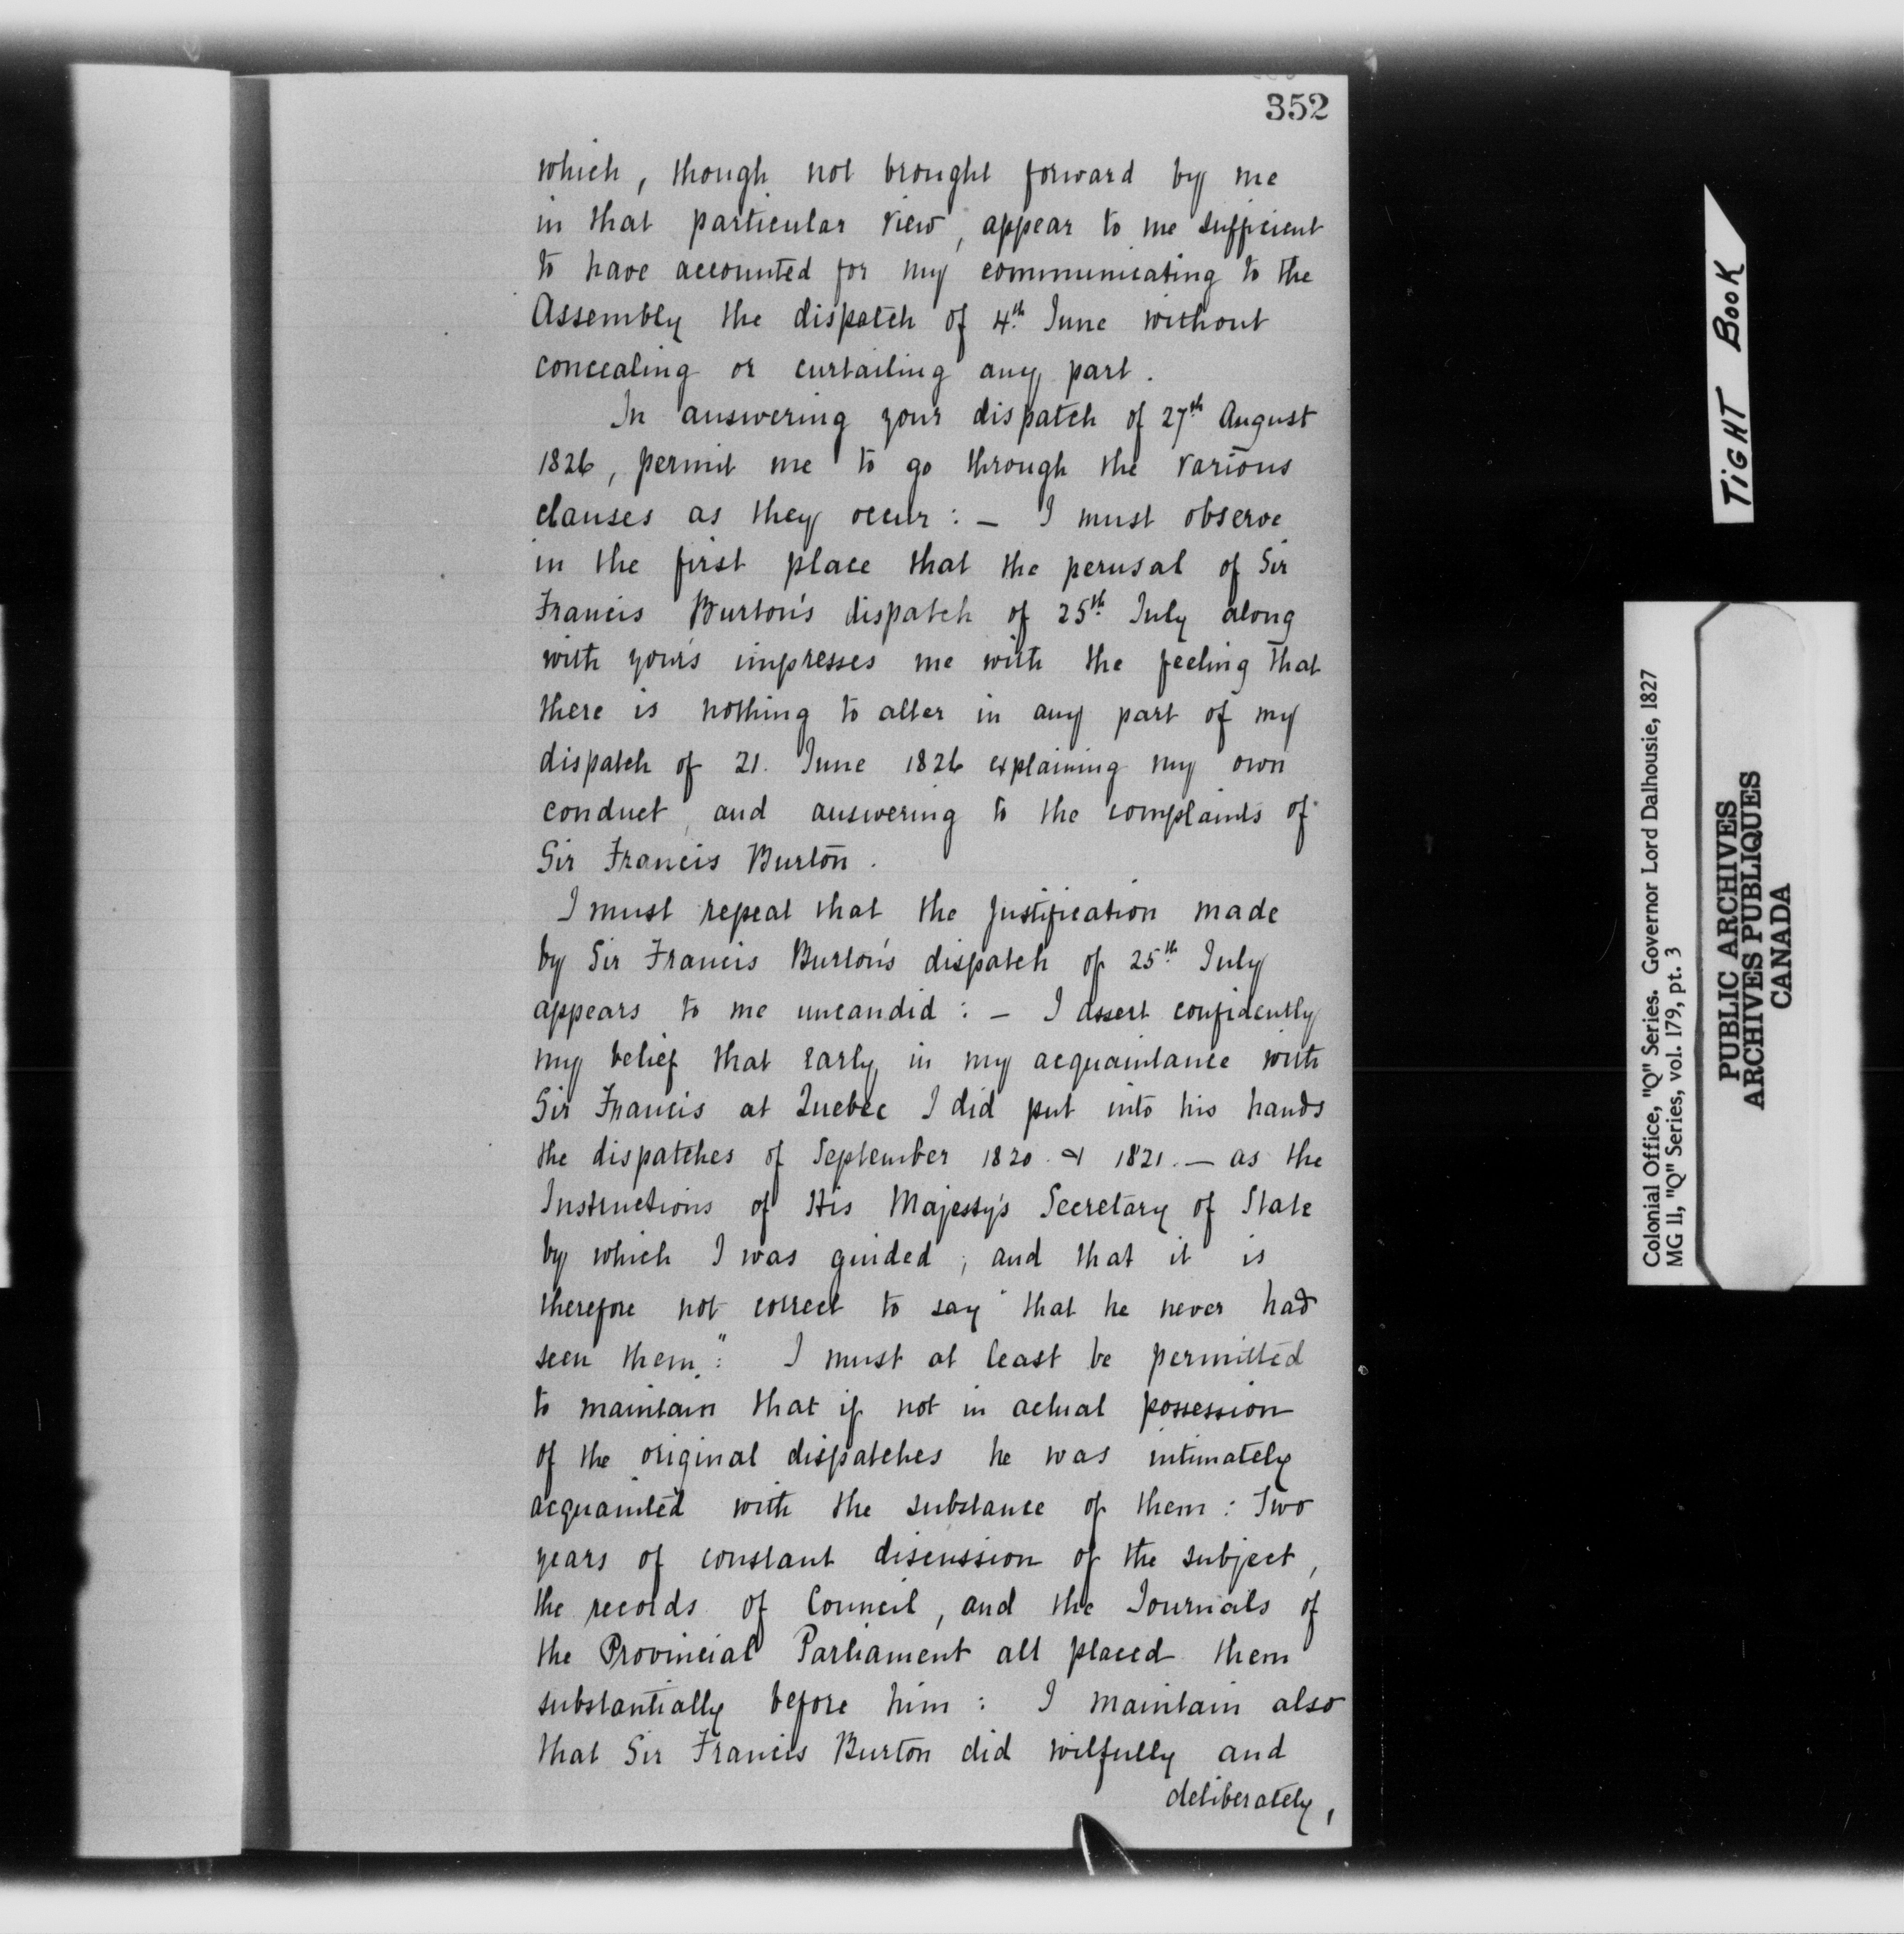 352
which, though not brought forward by me
in that particular view, appear to me sufficient
to have accounted for my communicating to the
Assembly the dispatch of 4th June without
concealing or curtailing any part.
In answering your dispatch of 27th August
1826, permit me to go through the various
clauses as they occur: — I must observe
in the first place that the perusal of Sir
Francis Burton's dispatch of 25th July along
with your's impresses me with the feeling that
there is nothing to alter in any part of my
dispatch of 21. June 1826 explaining my own
conduct, and answering to the complaints of
Sir Francis Burton.
I must repeat that the justification made
by Sir Francis Burton's dispatch of 25th July
appears to me uncandid: — I assert confidently
my belief that early in my acquaintance with
Sir Francis at Quebec I did put into his hands
the dispatches of September 1820 & 1821. — as the
Instructions of His Majesty's Secretary of State
by which I was guided; and that it is
therefore not correct to say "that he never had
seen them": I must at least be permitted
to maintain that if not in actual possession
of the original dispatches he was intimately
acquainted with the substance of them: Two
years of constant discussion of the subject,
the records of Council, and the Journals of
the Provincial Parliament all placed them
substantially before him: I maintain also
that Sir Francis Burton did wilfully and
deliberately,
TIGHT BOOK
Colonial Office, "Q" Series. Governor Lord Dalhousie, 1827
MG 11, "Q" Series, vol. 179, pt. 3
PUBLIC ARCHIVES
ARCHIVES PUBLIQUES
CANADA